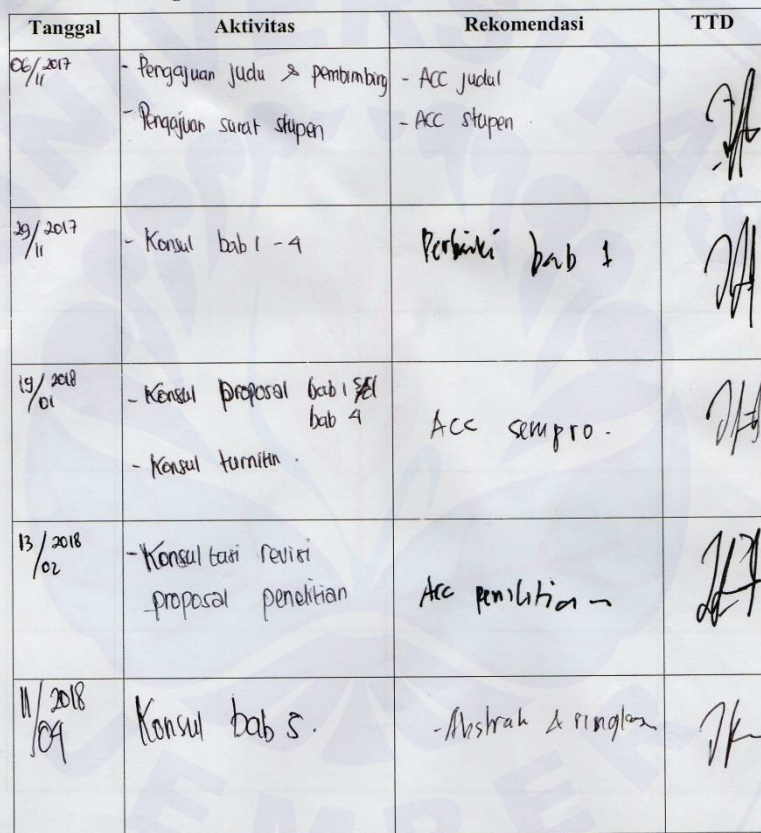 Tanggal Aktivitas Rekomendasi TTD
06/11 2017
- Pengajuan judu & pembimbing
- Pengajuan surat stupen
- ACC judul
- ACC stupen
29/11 2017
- Konsul bab 1 - 4
Perbaiki bab 1
19/01 2018
- Konsul proposal bab 1 s/d
bab 4
- Konsul turnitin.
Acc sempro.
13/02 2018
- Konsultasi revisi
proposal penelitian
Acc penelitian
11/04 2018
Konsul bab 5.
- Abstrak & ringkasan
UNIVERSITAS
JEMBER